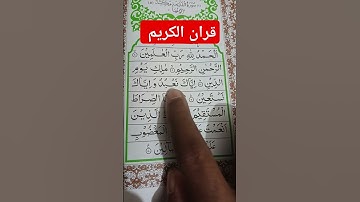 قران الكريم
اَلْحَمْدُ لِلّٰهِ رَبِّ الْعٰلَمِيْنَ ۝
الرَّحْمٰنِ الرَّحِيْمِ ۝ مٰلِكِ يَوْمِ
الدِّيْنِ ۝ اِيَّاكَ نَعْبُدُ وَاِيَّاكَ
نَسْتَعِيْنُ ۝ الصِّرَاطَ
الْمُسْتَقِيْمَ الَّذِيْنَ
اَنْعَمْتَ الْمَغْضُوْبِ